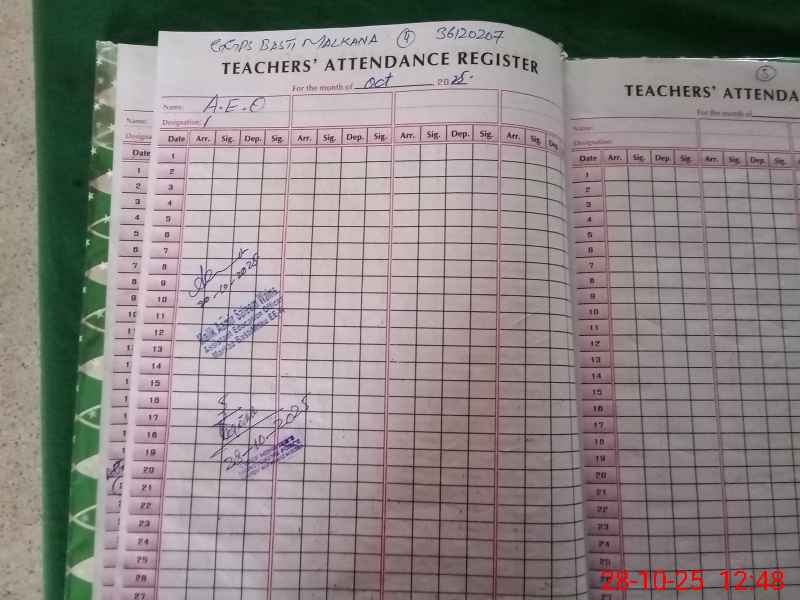 GGPS BASTI MALKANA 4 36120207
TEACHERS' ATTENDANCE REGISTER
For the month of Oct 2025.
Name: A.E.O
Designation:
Date Arr. Sig. Dep. Sig. Arr. Sig. Dep. Sig. Arr. Sig. Dep. Sig. Arr. Sig. Dep.
1
2
3
4
5
6
7
8
9
10
11
12
13
14
15
16
17
18
19
20
21
22
23
24
25
26
27
20-10-2025
Assistant Education Officer
28-10-2025
5
TEACHERS' ATTENDA
For the month of
Name:
Designation:
Date Arr. Sig. Dep. Sig. Arr. Sig. Dep. Sig.
1
2
3
4
5
6
7
8
9
10
11
12
13
14
15
16
17
18
19
20
21
22
23
24
25
Name:
Designa
Date
1
2
3
4
5
6
7
8
9
28-10-25 12:48